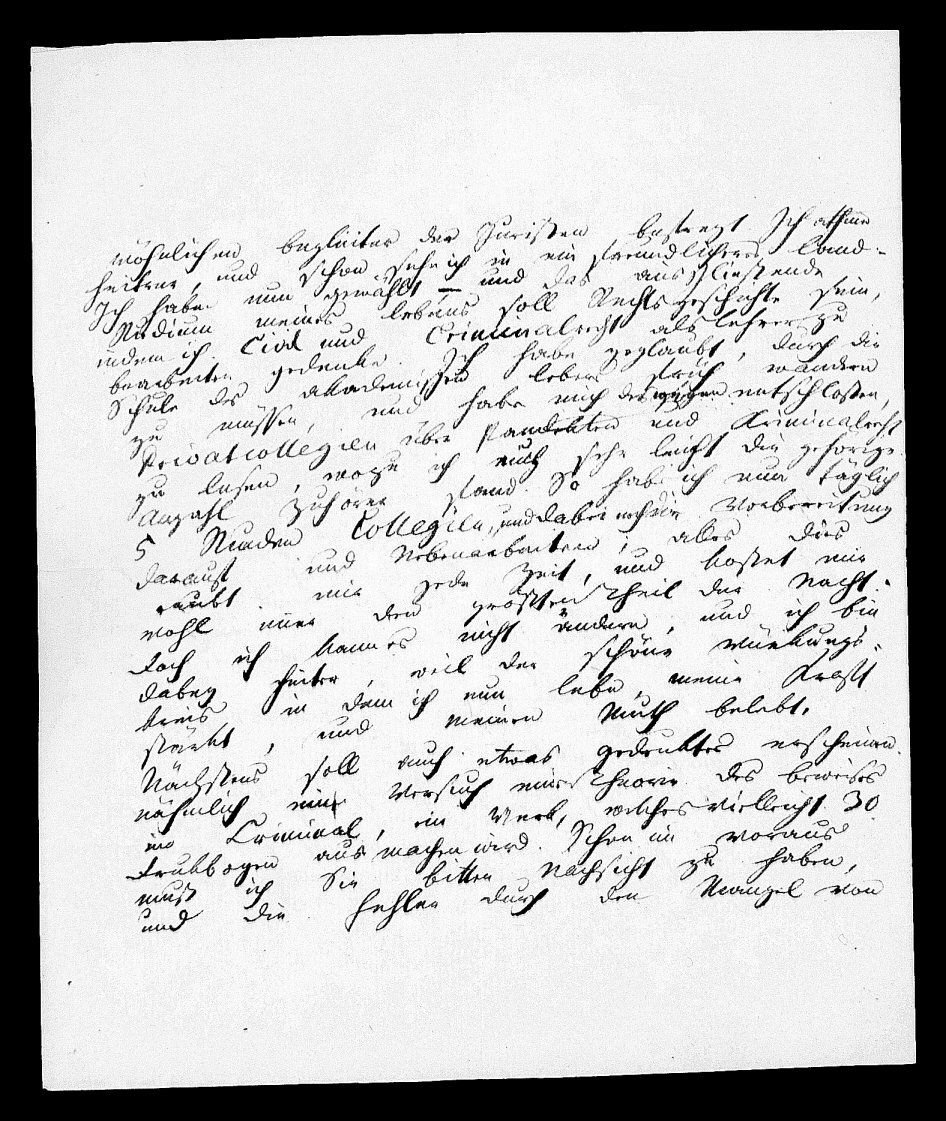 wöhnlichen begleiter der Juristen besiegt. Ich athme
heitrer, und schon sehe ich in ein freundlicheres land.
Ich habe nun gewählt – und das ausschliessende
Studium meines lebens soll Rechtsgeschichte sein,
indem ich Civil und Criminalrecht als lehrer zu
bearbeiten gedenke. Ich habe geglaubt, durch die
Schule des akademischen lebens früh wandern
zu müssen, und habe mich deswegen entschlossen,
Privatcollegien über Pandekten und Kriminalrecht
zu lesen, wozu ich auch sehr leicht die gehörige
Anzahl Zuhörer fand. So habe ich nun täglich
5 Stunden Collegien, und dabei noch die Vorbereitung
darauf und Nebenarbeiten; alles dies
raubt mir jede Zeit, und kostet mir
wohl immer den grösten Theil der Nacht.
doch ich kann es nicht ändern, und ich bin
dabey heiter, weil der schöne würkungs-
kreis in dem ich nun lebe, meine Kraft
stärkt, und meinen Muth belebt.
Nächstens soll auch etwas gedruktes erscheinen
nähmlich ein Versuch einer Theorie des beweises
im Criminal, ein Werk, welches vielleicht 30
Drukbogen ausmachen wird. Schon im voraus
muß ich Sie bitten Nachsicht zu haben,
und die fehler durch den Mangel von